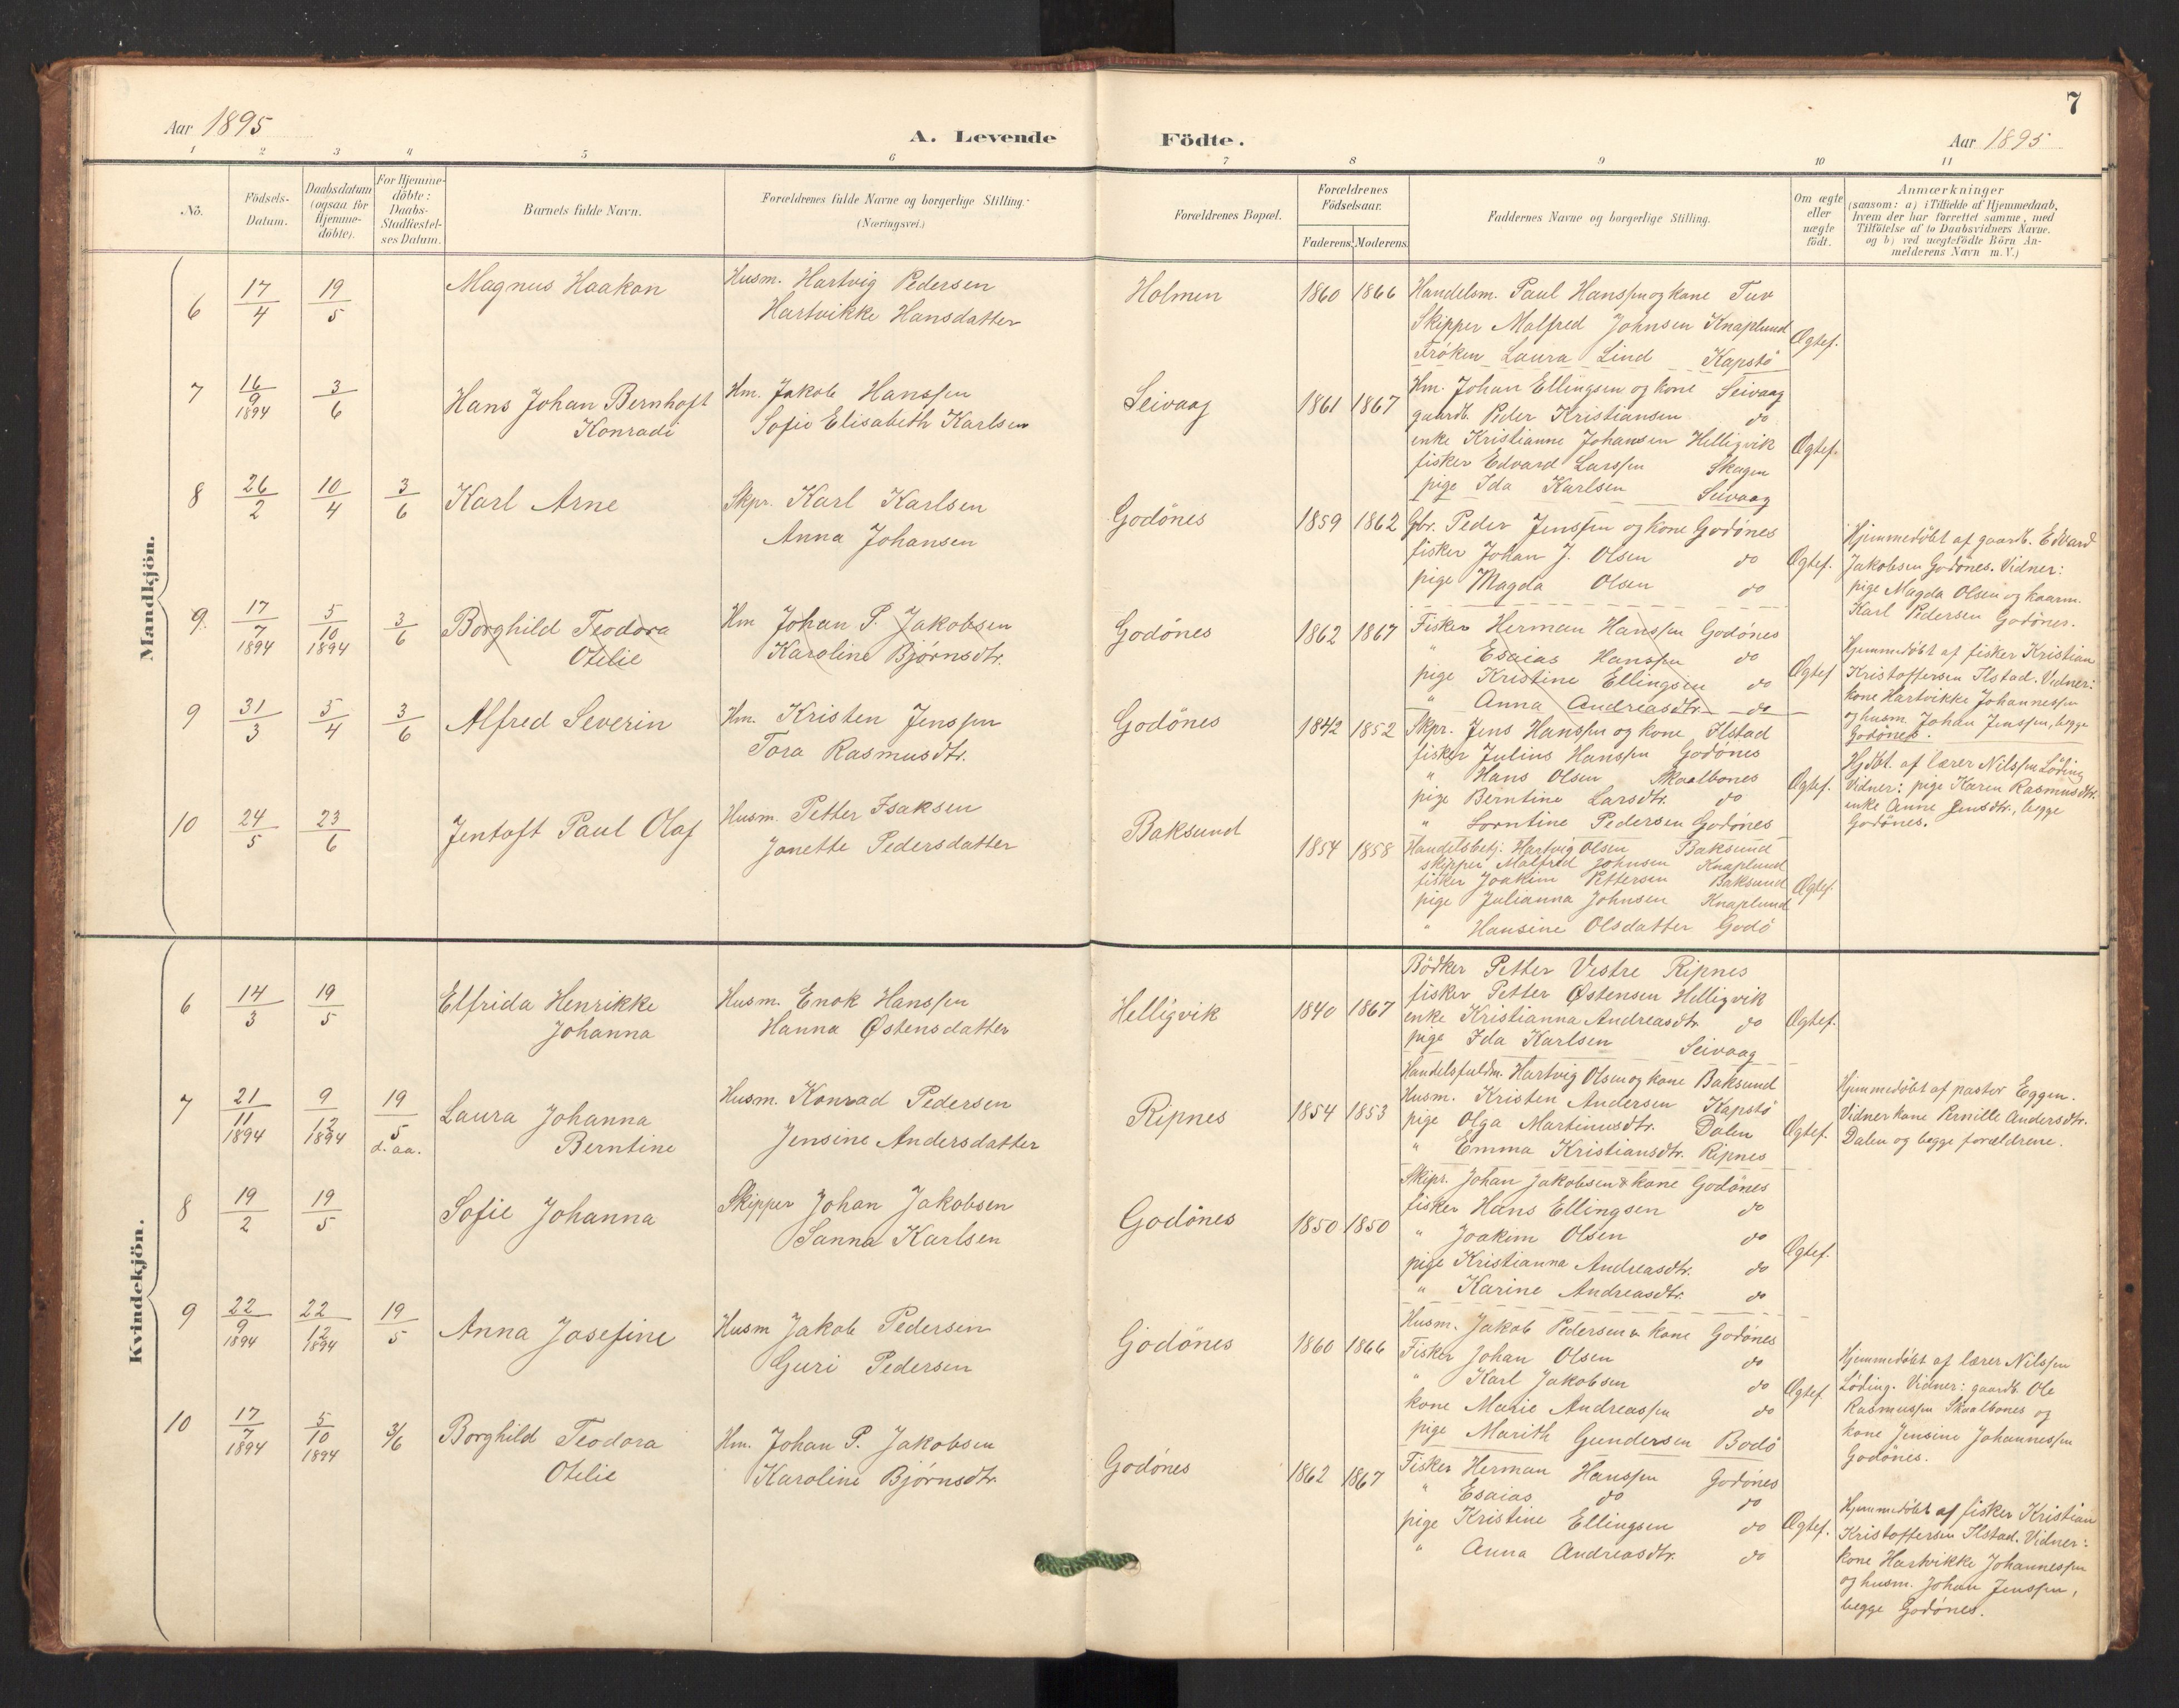 7
Aar 1895
A. Levende Födte.
Aar 1895
1 2 3 4 5 6 7 8 9 10 11
No.
Födsels-Datum.
Daabsdatum (ogsaa for Hjemme-döbte).
For Hjemme-döbte: Daabs-Stadfæstel-ses Datum.
Barnets fulde Navn.
Forældrenes fulde Navne og borgerlige Stilling. (Næringsvei.)
Forældrenes Bopæl.
Forældrenes Födselsaar.
Faderens. Moderens.
Faddernes Navne og borgerlige Stilling.
Om ægte eller uægte födt.
Anmærkninger
(saasom: a) i Tilfælde af Hjemmedaab,
hvem der har forrettet samme, med
Tilföielse af to Daabsvidners Navne.
og b) ved uægtefödte Börn An-
melderens Navn m.V.)
Mandkjön.
6 17/4 19/5 Magnus Haakon
Husm. Hartvig Pedersen
Hartvikke Hansdatter
Holmen 1860 1866
Handelsm. Paul Hanssen og kone Tuv
Skipper Malfred Johnsen Knaplund
Frøken Laura Lind Kapstö
Ægtef.
7 16/9 1894 3/6 Hans Johan Bernhoft
Konradi
Hm. Jakob Hanssen
Sofie Elisabeth Karlsen
Seivaag 1861 1867
Hm. Johan Ellingsen og kone Seivaag
gaardb. Peder Kristiansen do
enke Kristianne Johansen Helligvik
fisker Edvard Larssen Skagen
pige Ida Karlsen Seivaag
Ægtef.
8 26/2 10/4 3/6 Karl Arne
Skpr. Karl Karlsen
Anna Johansen
Godönes 1859 1862
Gbr. Peder Jenssen og kone Godönes
fisker Johan J. Olsen do
pige Magda Olsen do
Ægtef.
Hjemmedöbt af gaardb. Edvard
Jakobsen Godönes. Vidner:
pige Magda Olsen og kaarm.
Karl Pedersen Godönes.
9. 17/7 1894 5/10 1894 3/6 Borghild Teodora
Otelie
Hm Johan P. Jakobsen
Karoline Bjørnsdtr.
Godönes 1862 1867
Fisker Herman Hanssen Godönes
" Esaias Hanssen do
pige Kristine Ellingsen do
" Anna Andreasdtr. do
Ægtef
Hjemmedöbt af fisker Kristian
Kristoffersen Ilstad. Vidner:
kone Hartvikke Johannessen
og husm. Johan Jenssen, begge
Godönes.
9 31/3 5/4 3/6 Alfred Severin
Hm. Kristen Jenssen
Tora Rasmusdtr.
Godönes 1842 1852
Skpr. Jens Hanssen og kone Ilstad
fisker Julius Hanssen Godönes
" Hans Olsen Skaalbones
pige Berntine Larsdtr. do
" Lorntine Pedersen Godönes
Ægtef.
Hjdbt. af lærer Nilssen Löding
Vidner: pige Karen Rasmusdtr.
enke Anne Jensdtr., begge
Godönes.
10 24/5 23/6 Jentoft Paul Olaf
Husm. Petter Isaksen
Jonette Pedersdatter
Baksund 1854 1858
Handelsbetj. Hartvig Olsen Baksund
skipper Malfred Johnsen Knaplund
fisker Joakim Pettersen Baksund
pige Julianna Johnsen Knaplund
" Hansine Olsdatter Godö
Ægtef.
Kvindekjön.
6 14/3 19/5 Elfrida Henrikke
Johanna
Husm. Enok Hanssen
Hanna Østensdatter
Helligvik 1840 1867
Bödker Petter Vestre Ripnes
fisker Petter Østensen Helligvik
enke Kristianna Andreasdtr do
pige Ida Karlsen Seivaag
Ægtef.
7 21/11 1894 9/12 1894 19/5 d. aa. Laura Johanna
Berntine
Husm. Konrad Pedersen
Jensine Andersdatter
Ripnes 1854 1853
Handelsfuldm. Hartvig Olsen og kone Baksund
Husm. Kristen Andersen Kapstö
pige Olga Martinusdtr. Dalen
" Emma Kristiansdtr. Ripnes
Ægtef.
Hjemmedöbt af pastor Eggen.
Vidner kone Pernille Andersdtr.
Dalen og begge forældrene.
8 19/2 19/5 Sofie Johanna
Skipper Johan Jakobsen
Sanna Karlsen
Godönes 1850 1850
Skipr. Johan Jakobsen & kone Godönes
fisker Hans Ellingsen do
" Joakim Olsen do
pige Kristianna Andreasdtr. do
" Karine Andreasdtr. do
Ægtef.
9 22/9 1894 22/12 1894 19/5 Anna Josefine
Husm Jakob Pedersen
Guri Pedersen
Godönes 1860 1866
Husm. Jakob Pedersen & kone Godönes
Fisker Johan Olsen do
" Karl Jakobsen do
kone Marie Andreassen do
pige Marith Gundersen Bodö
Ægtef
Hjemmedöbt af lærer Nilssen
Löding. Vidner: gaardb. Ole
Rasmussen Skaalbones og
kone Jensine Johannessen
Godönes.
10 17/7 1894 5/10 1894 3/6 Borghild Teodora
Otelie
Hm. Johan P. Jakobsen
Karoline Bjørnsdtr.
Godönes 1862 1867
Fisker Herman Hanssen Godönes
" Esaias do do
pige Kristine Ellingsen do
" Anna Andreasdtr. do
Ægtef.
Hjemmedöbt af fisker Kristian
Kristoffersen Ilstad. Vidner:
kone Hartvikke Johannessen
og husm. Johan Jenssen,
begge Godönes.